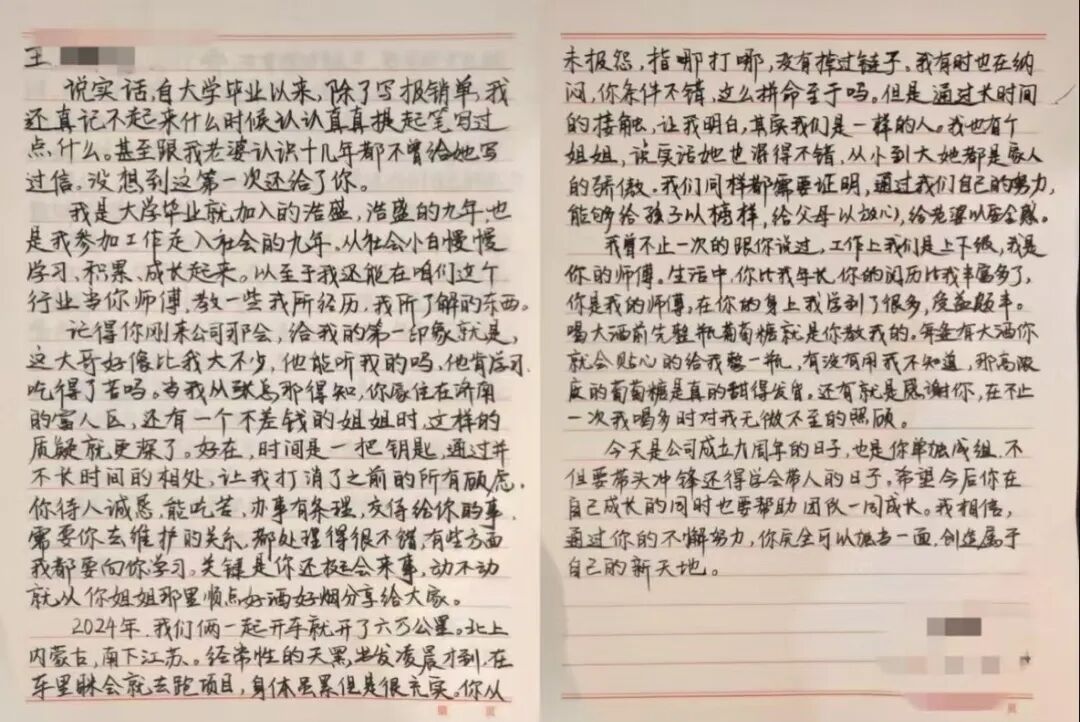 王
说实话,自大学毕业以来,除了写报销单,我
还真记不起来什么时候认认真真提起笔写过
点什么。甚至跟我老婆认识十几年都不曾给她写
过信。没想到这第一次还给了你。
我是大学毕业就加入的浩盛,浩盛的九年,也
是我参加工作走入社会的九年。从社会小白慢慢
学习、积累、成长起来。以至于我还能在咱们这个
行业当你师傅,教一些我所经历,我所了解的东西。
记得你刚来公司那会,给我的第一印象就是,
这大哥好像比我大不少,他能听我的吗,他肯学习,
吃得了苦吗。当我从张总那得知,你家住在济南
的富人区,还有一个不差钱的姐姐时,这样的
质疑就更深了。好在,时间是一把钥匙,通过并
不长时间的相处,让我打消了之前的所有顾虑,
你待人诚恳,能吃苦,办事有条理,交待给你的事,
需要你去维护的关系,都处理得很不错,有些方面
我都要向你学习。关键是你还挺会来事,动不动
就从你姐姐那里顺点好酒好烟分享给大家。
2024年,我们俩一起开车就开了六万公里。北上
内蒙古,南下江苏。经常性的天黑出发凌晨才到,在
车里眯会就去跑项目,身体虽累但是很充实。你从
未报怨,指哪打哪,没有掉过链子。我有时也在纳
闷,你条件不错,这么拼命至于吗。但是通过长时间
的接触,让我明白,其实我们是一样的人。我也有个
姐姐,说实话她也混得不错,从小到大她都是家人
的骄傲。我们同样都需要证明,通过我们自己的努力,
能够给孩子以榜样,给父母以放心,给老婆以安全感。
我曾不止一次的跟你说过,工作上我们是上下级,我是
你的师傅。生活中,你比我年长,你的阅历比我丰富多了,
你是我的师傅,在你的身上我学到了很多,受益颇丰。
喝大酒前先整瓶葡萄糖就是你教我的。每逢有大酒你
就会贴心的给我整一瓶,有没有用我不知道,那高浓
度的葡萄糖是真的甜得发齁。还有就是感谢你,在不止
一次我喝多时对我无微不至的照顾。
今天是公司成立九周年的日子,也是你单独成组,不
但要带头冲锋还得学会带人的日子。希望今后你在
自己成长的同时也要帮助团队一同成长。我相信,
通过你的不懈努力,你完全可以独当一面,创造属于
自己的新天地。